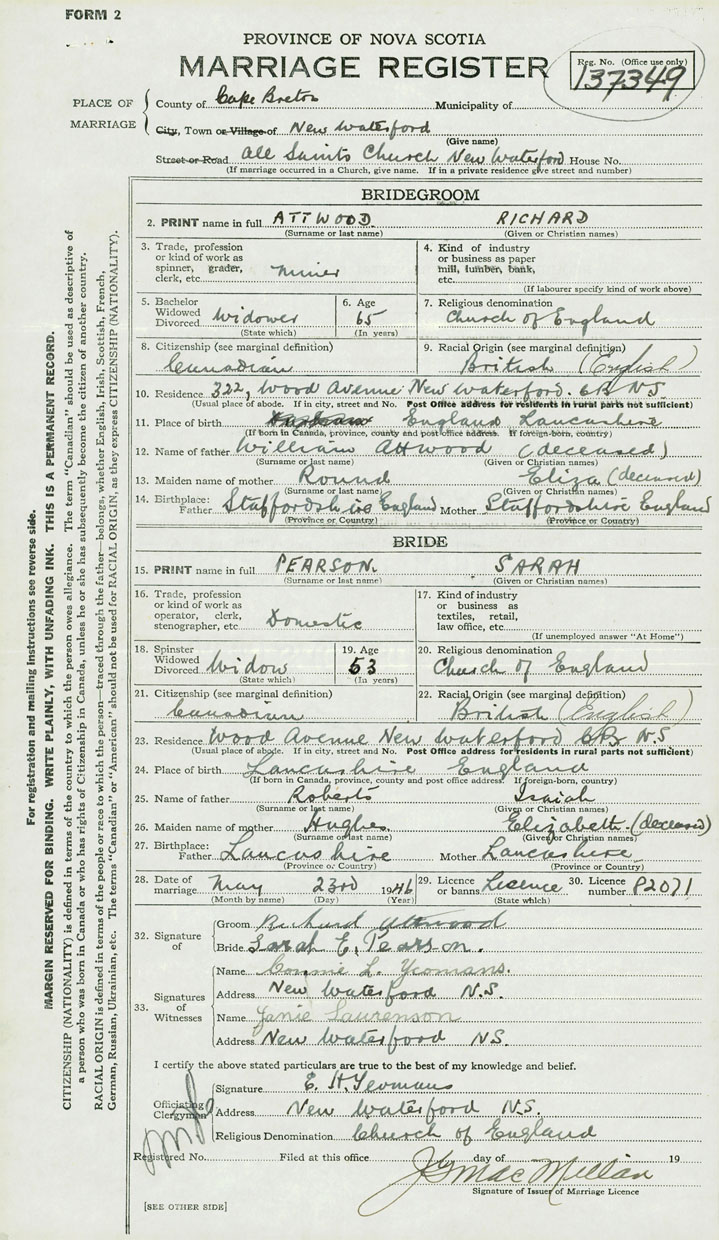 FORM 2
PROVINCE OF NOVA SCOTIA
MARRIAGE REGISTER
Reg. No. (Office use only)
137349
PLACE OF MARRIAGE
County of Cape Breton Municipality of
City, Town or Village of New Waterford
(Give name)
Street or Road All Saints Church New Waterford House No.
(If marriage occurred in a Church, give name. If in a private residence give street and number)
BRIDEGROOM
2. PRINT name in full ATTWOOD RICHARD
(Surname or last name) (Given or Christian names)
3. Trade, profession or kind of work as spinner, grader, clerk, etc. Miner
4. Kind of industry or business as paper mill, lumber, bank, etc.
(If labourer specify kind of work above)
5. Bachelor Widowed Divorced Widower
(State which)
6. Age 65
(In years)
7. Religious denomination
Church of England
8. Citizenship (see marginal definition)
Canadian
9. Racial Origin (see marginal definition)
British (English)
10. Residence 322, Wood Avenue New Waterford. CB NS
(Usual place of abode. If in city, street and No. Post Office address for residents in rural parts not sufficient)
11. Place of birth England Lancashire
(If born in Canada, province, county and post office address. If foreign-born, country)
12. Name of father William Attwood (deceased)
(Surname or last name) (Given or Christian names)
13. Maiden name of mother Round Eliza (deceased)
(Surname or last name) (Given or Christian names)
14. Birthplace: Father Staffordshire England Mother Staffordshire England
(Province or Country) (Province or Country)
BRIDE
15. PRINT name in full PEARSON. SARAH
(Surname or last name) (Given or Christian names)
16. Trade, profession or kind of work as operator, clerk, stenographer, etc Domestic
17. Kind of industry or business as textiles, retail, law office, etc.
(If unemployed answer "At Home")
18. Spinster Widowed Divorced Widow
(State which)
19. Age 53
(In years)
20. Religious denomination
Church of England
21. Citizenship (see marginal definition)
Canadian
22. Racial Origin (see marginal definition)
British (English)
23. Residence Wood Avenue New Waterford CB N.S
(Usual place of abode. If in city, street and No. Post Office address for residents in rural parts not sufficient)
24. Place of birth Lancashire England
(If born in Canada, province, county and post office address. If foreign-born, country)
25. Name of father Roberts Isaiah
(Surname or last name) (Given or Christian names)
26. Maiden name of mother Hughes. Elizabeth. (deceased)
(Surname or last name) (Given or Christian names)
27. Birthplace: Father Lancashire Mother Lancashire
(Province or Country) (Province or Country)
28. Date of marriage May 23rd 1946
(Month by name) (Day) (Year)
29. Licence or banns Licence
(State which)
30. Licence number P2071
32. Signature of
Groom Richard Attwood
Bride Sarah E. Pearson.
33. Signatures of Witnesses
Name Connie L. Yeomans.
Address New Waterford N.S.
Name Janie Laurenson
Address New Waterford NS.
I certify the above stated particulars are true to the best of my knowledge and belief.
Officiating Clergyman
Signature E. H. Yeomans
Address New Waterford N.S.
Religious Denomination Church of England
Registered No. Filed at this office day of 19
J G MacMillan
Signature of Issuer of Marriage Licence
[SEE OTHER SIDE]
For registration and mailing instructions see reverse side.
MARGIN RESERVED FOR BINDING. WRITE PLAINLY, WITH UNFADING INK. THIS IS A PERMANENT RECORD.
CITIZENSHIP (NATIONALITY) is defined in terms of the country to which the person owes allegiance. The term "Canadian" should be used as descriptive of
a person who was born in Canada or who has rights of Citizenship in Canada, unless he or she has subsequently become the citizen of another country.
RACIAL ORIGIN is defined in terms of the people or race to which the person—traced through the father—belongs, whether English, Irish, Scottish, French,
German, Russian, Ukrainian, etc. The terms "Canadian" or "American" should not be used for RACIAL ORIGIN, as they express CITIZENSHIP (NATIONALITY).